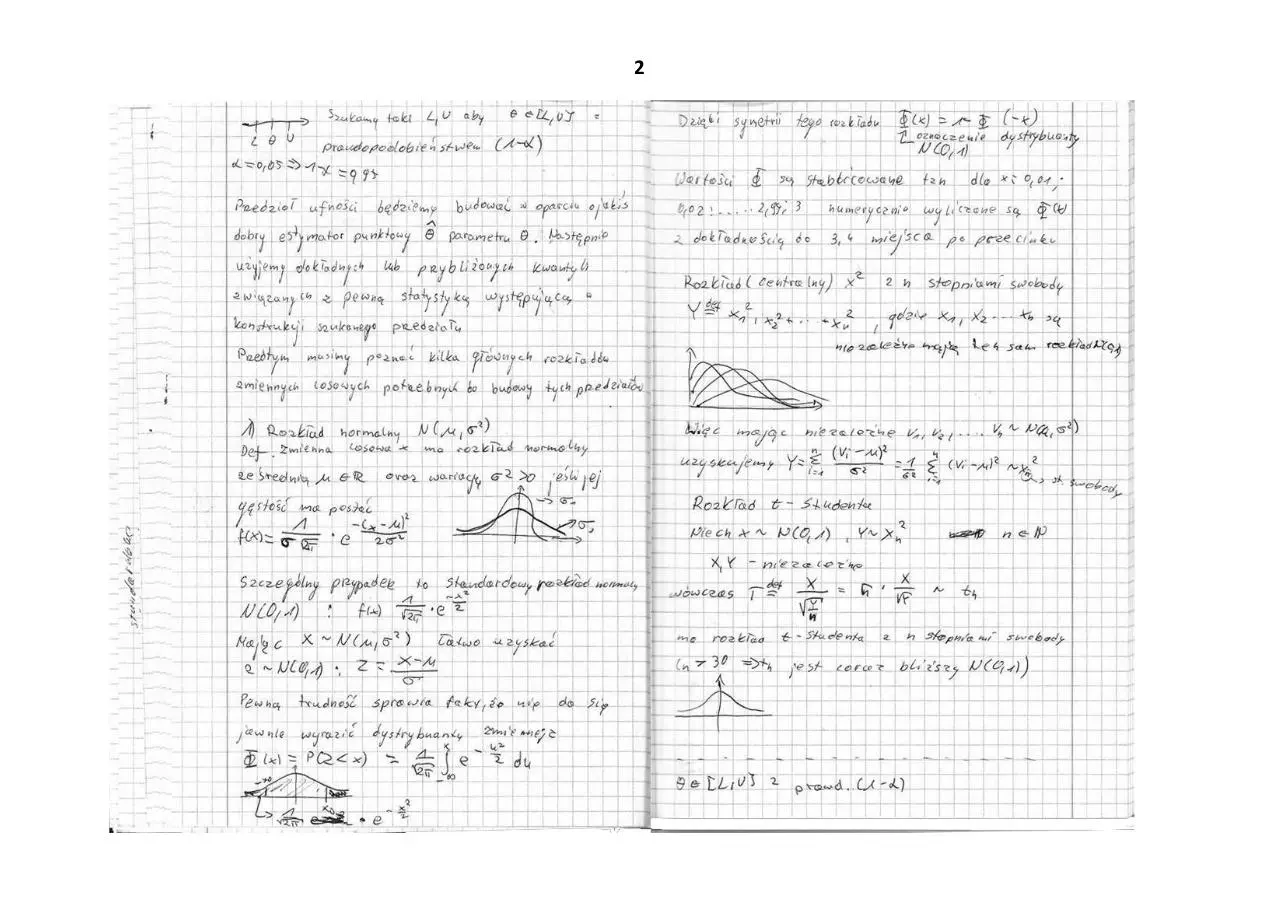 2
Szukamy taki L, U aby θ ∈ [L, U] z
L θ U
prawdopodobieństwem (1-α)
α = 0,05 => 1-α = 0,95
Przedział ufności będziemy budować w oparciu o jakiś
dobry estymator punktowy θ̂ parametru θ. Następnie
użyjemy dokładnych lub przybliżonych kwantyli
związanych z pewną statystyką występującą w
konstrukcji szukanego przedziału
Przedtym musimy poznać kilka głównych rozkładów
zmiennych losowych potrzebnych do budowy tych przedziałów
1) Rozkład normalny N(μ, σ²)
Def. Zmienna losowa x ma rozkład normalny
ze średnią μ ∈ R oraz wariację σ² > 0 jeśli jej
gęstość ma postać
f(x) = 1/(σ√2π) · e^(-(x-μ)²/2σ²)
standardowy
Szczególny przypadek to standardowy rozkład normalny
N(0,1) : f(x) 1/√2π · e^(-x²/2)
Mając X ~ N(μ, σ²) łatwo uzyskać
z ~ N(0,1) : Z = (x-μ)/σ
Pewną trudność sprawia fakt, że nie da się
jawnie wyrazić dystrybuanty zmiennej z
Φ(x) = P(Z < x) = 1/√2π ∫_{-∞}^{x} e^(-u²/2) du
1/√2π · e^(-x²/2)
Dzięki symetrii tego rozkładu Φ(x) = 1 - Φ(-x)
oznaczenie dystrybuanty
N(0,1)
Wartości Φ są stablicowane tzn dla x = 0,01;
0,02; ..... 2,99; 3 numerycznie wyliczane są Φ(x)
z dokładnością do 3,4 miejsca po przecinku
Rozkład (centralny) x² z n stopniami swobody
Y def= x₁² + x₂² + ... + xₙ² , gdzie x₁, x₂ ... xₙ są
niezależne mają ten sam rozkład N(0,1)
Więc mając niezależne V₁, V₂, .... Vₙ ~ N(μ, σ²)
uzyskujemy Y = Σ_{i=1}^{n} (Vi-μ)²/σ² = 1/σ² Σ_{i=1}^{n} (Vi-μ)² ~ xₙ²
st. swobody
Rozkład t-studenta
Niech x ~ N(0,1) , Y ~ Xₙ² n ∈ N
X, Y - niezależne
wówczas T def= X/√(Y/n) = √n · X/√Y ~ tₙ
ma rozkład t-studenta z n stopniami swobody
(n > 30 => tₙ jest coraz bliższy N(0,1))
θ ∈ [L, U] z prawd. (1-α)